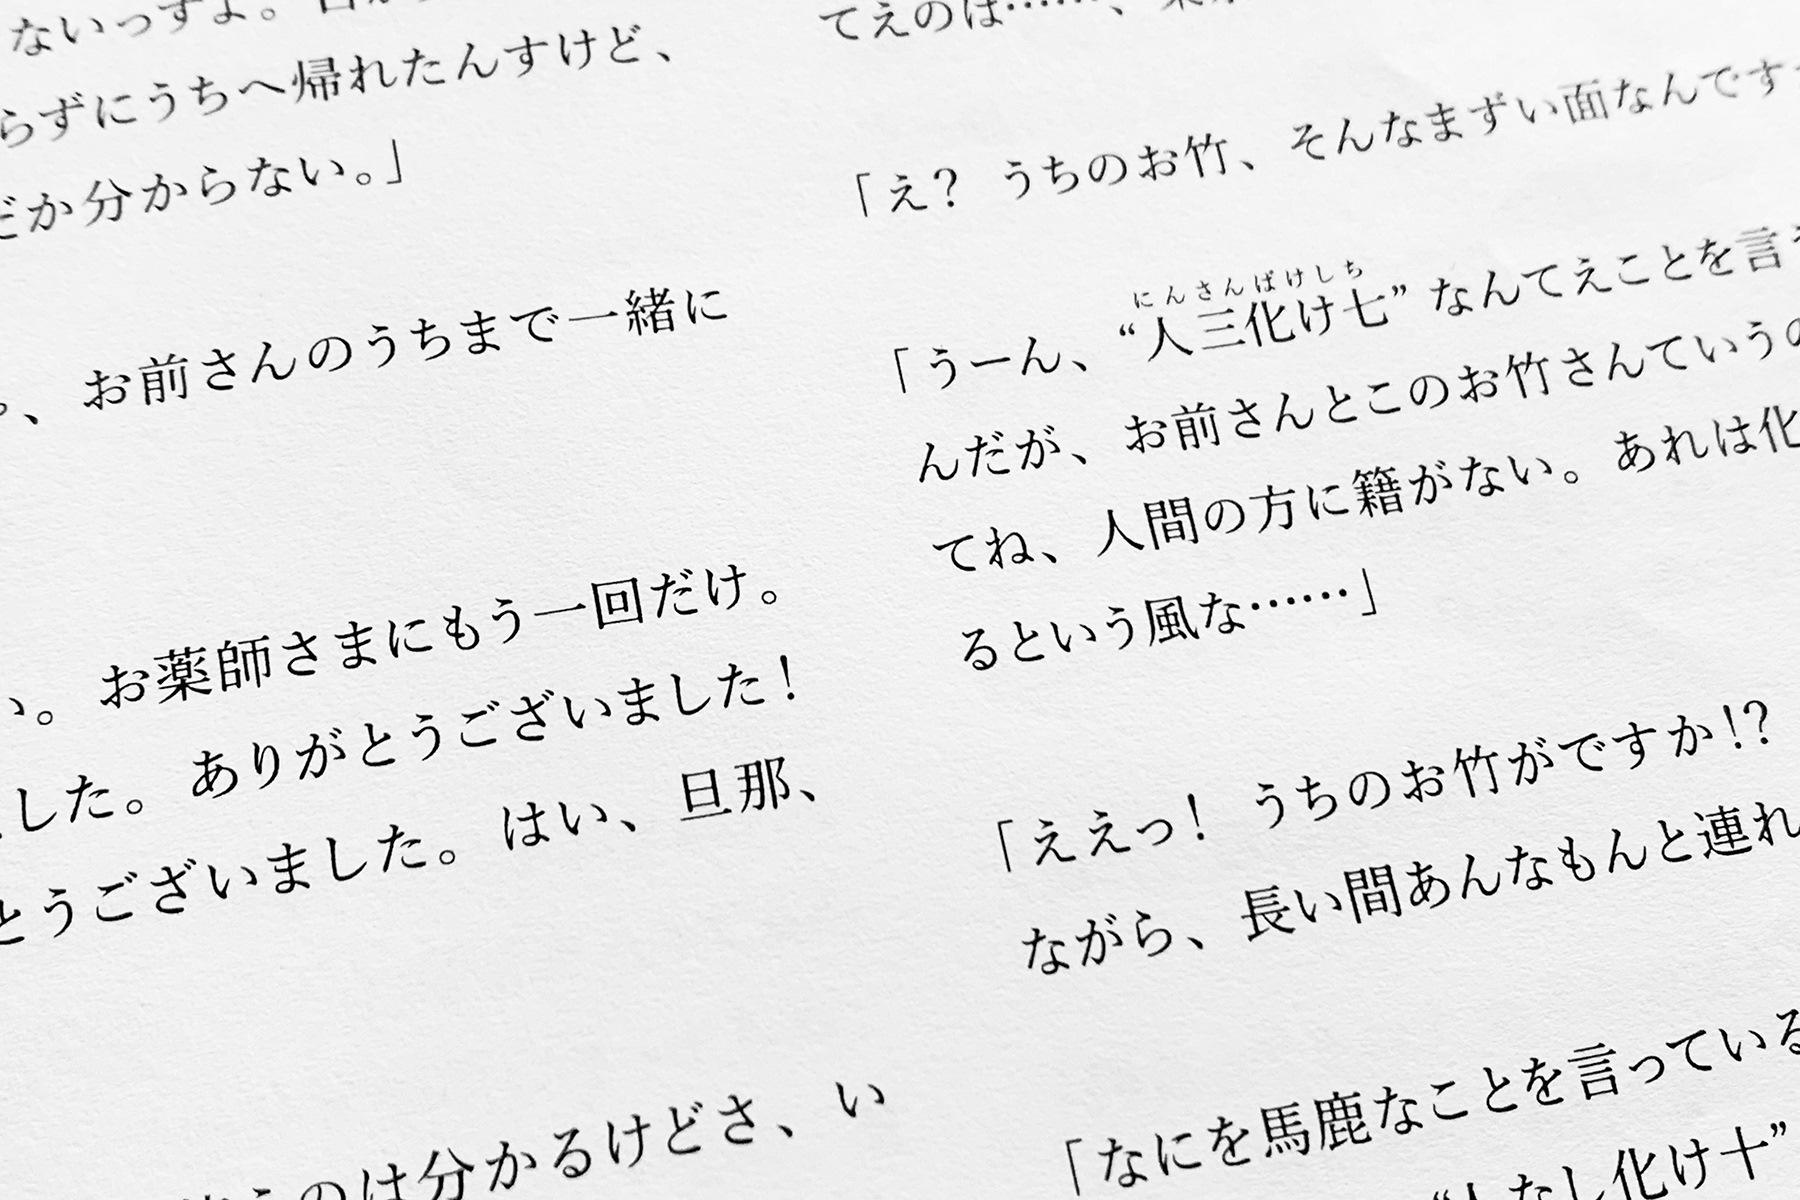 ないっすよ。
らずにうちへ帰れたんすけど、
だか分からない。」
、お前さんのうちまで一緒に
。お薬師さまにもう一回だけ。
した。ありがとうございました！
とうございました。はい、旦那、
のは分かるけどさ、い
てえのは……、
「え？ うちのお竹、そんなまずい面なんです
にんさんばけしち
「うーん、“人三化け七”なんてえことを言う
んだが、お前さんとこのお竹さんていうの
てね、人間の方に籍がない。あれは化
るという風な……」
「ええっ！ うちのお竹がですか!?
ながら、長い間あんなもんと連れ
「なにを馬鹿なことを言っている
“人なし化け十”